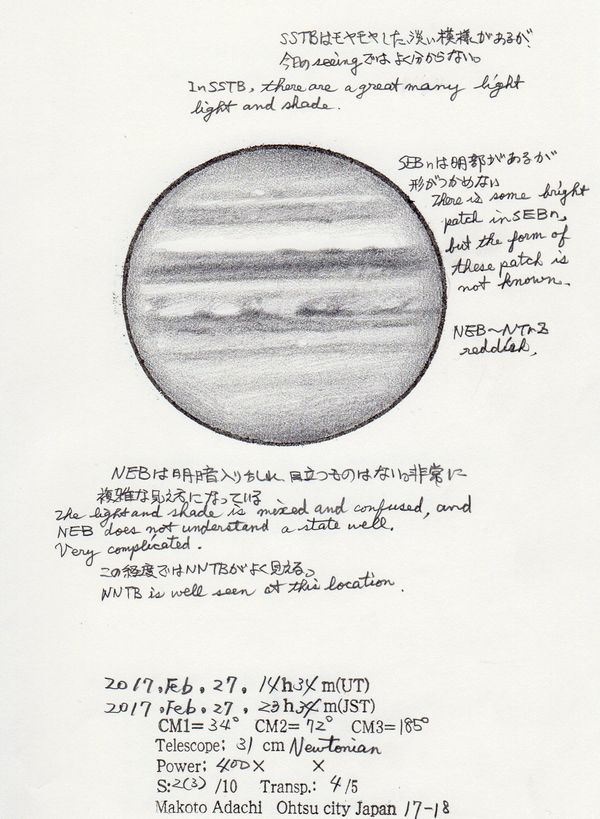 SSTBはモヤモヤした淡い模様があるが、
今日のseeingではよく分からない。
In SSTB, there are a great many light
light and shade.
SEBnは明部があるが
形がつかめない
There is some bright
patch in SEBn,
but the form of
these patch is
not known.
NEB～NTrZ
reddish,
NEBは明暗入り乱れ、目立つものはない。非常に
複雑な見え方になっている
The light and shade is mixed and confused, and
NEB does not understand a state well.
Very complicated.
この経度ではNNTBがよく見える。
NNTB is well seen at this location.
2017, Feb. 27, 14h34m(UT)
2017, Feb. 27, 23h34m(JST)
CM1=34° CM2=72° CM3=185°
Telescope: 31 cm Newtonian
Power: 400× ×
S:2(3) /10 Transp.: 4/5
Makoto Adachi Ohtsu city Japan 17-18